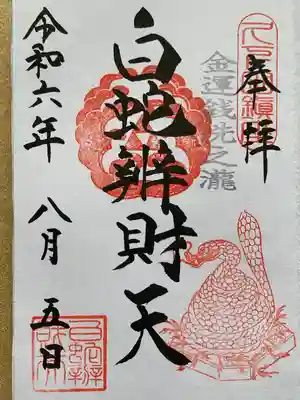 奉拝
金運銭洗之瀧
白蛇辨財天
令和六年 八月 五日